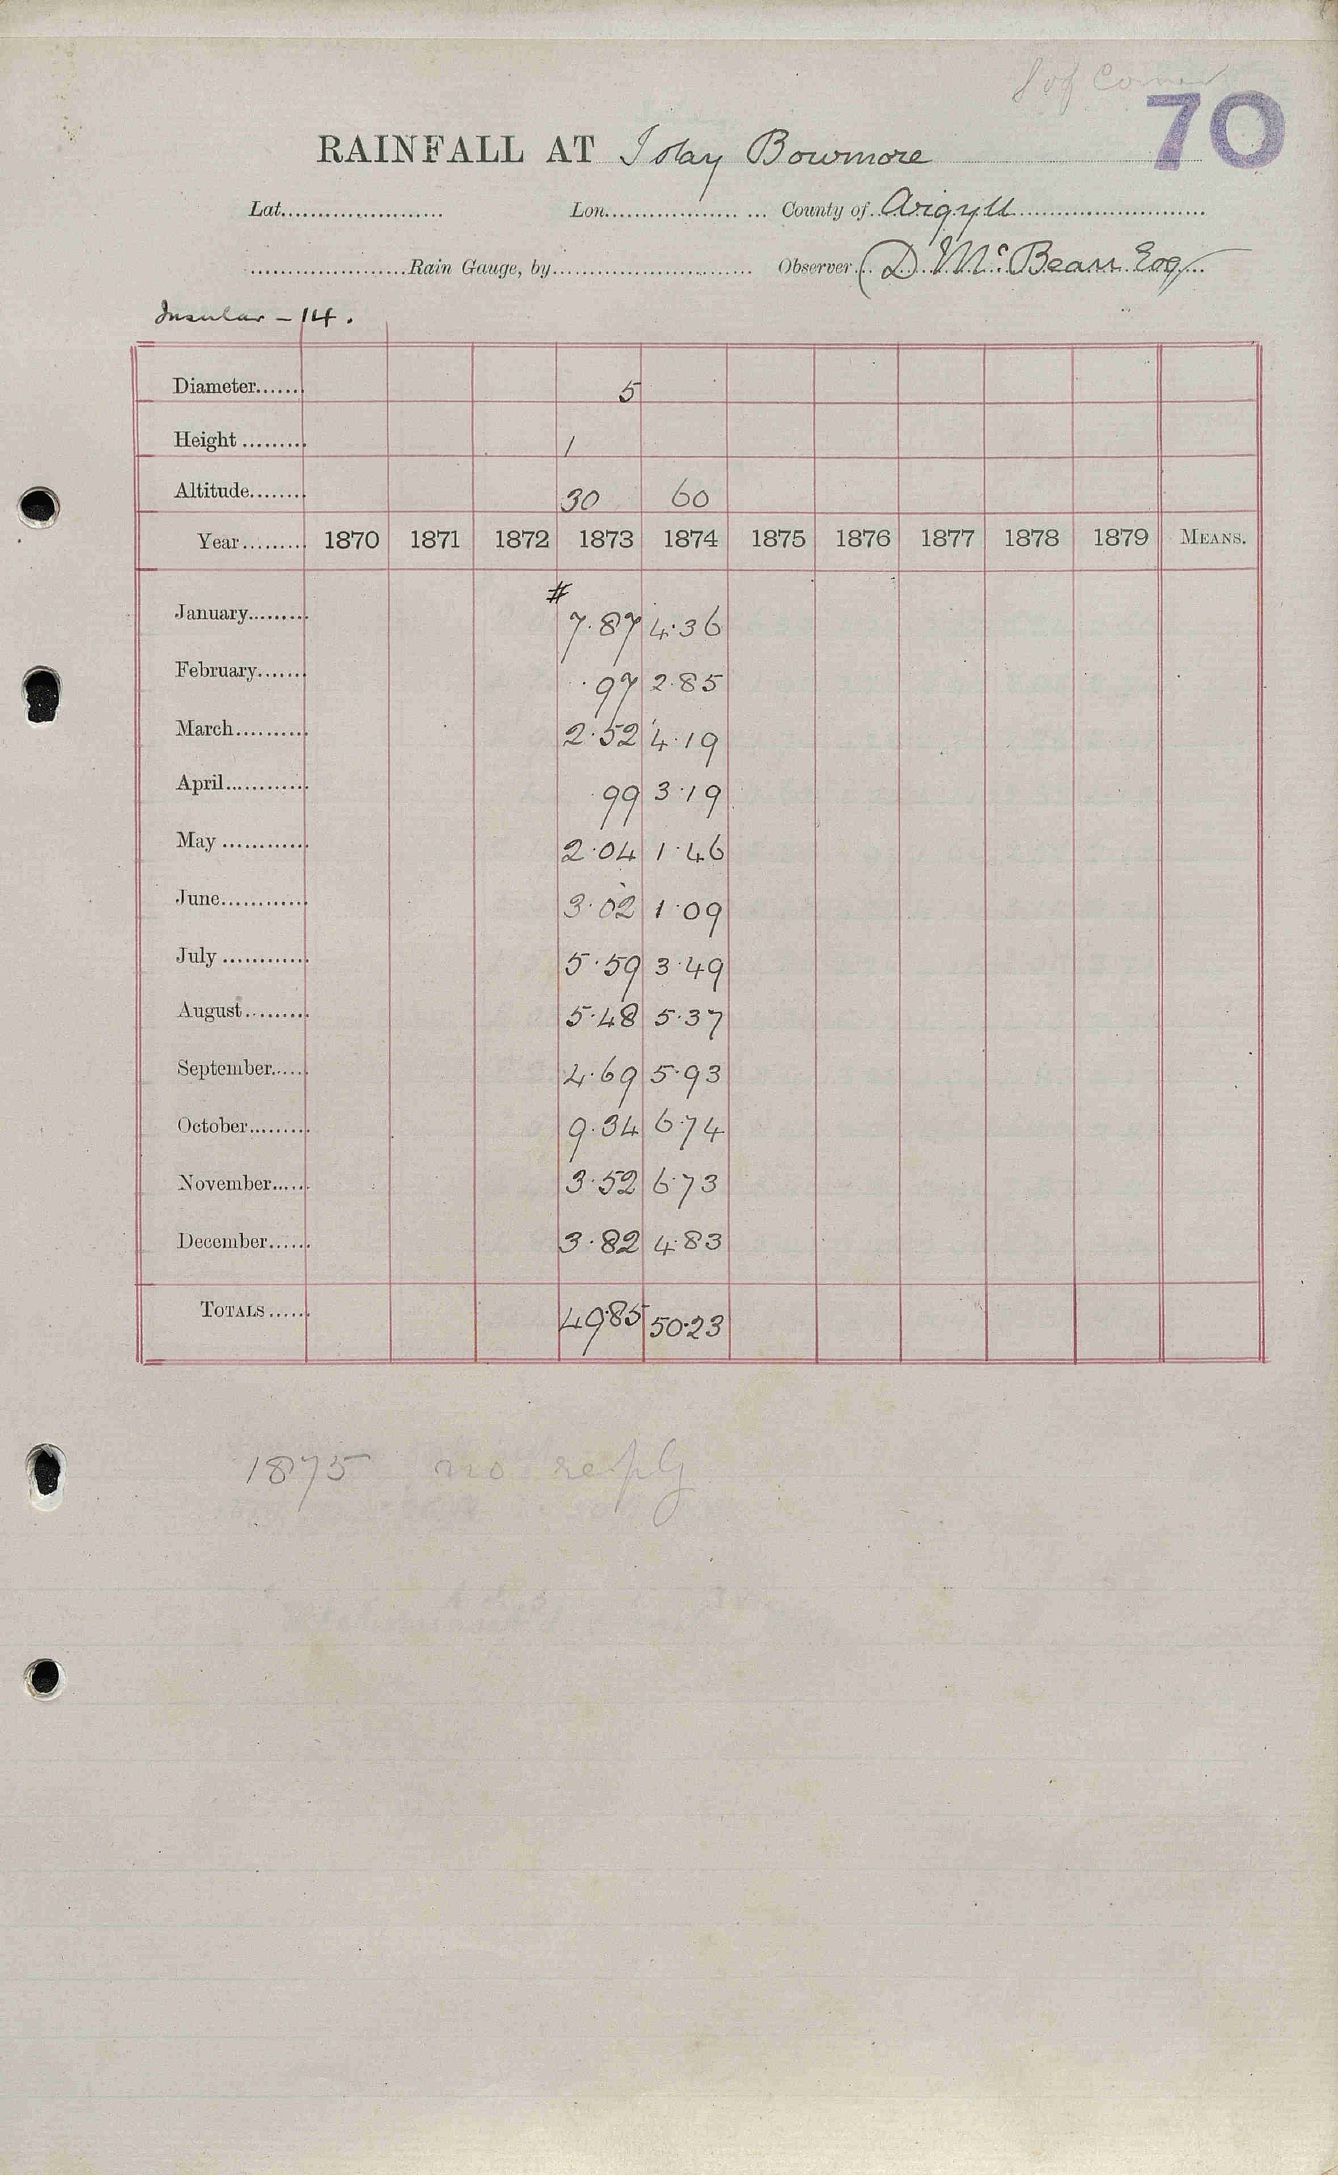 70
RAINFALL AT Islay Bowmore
Lat...................... Lon.................. ... County of Argyll
......................Rain Gauge, by........................... Observer (D. McBean Esq
Insular - 14.
Diameter...... 5
Height ......... 1
Altitude........ 30 60
Year......... 1870 1871 1872 1873 1874 1875 1876 1877 1878 1879 MEANS.
#
January......... 7.87 4.36
February....... .97 2.85
March.......... 2.52 4.19
April............ .99 3.19
May ............ 2.04 1.46
June............ 3.02 1.09
July ............ 5.59 3.49
August......... 5.48 5.37
September..... 4.69 5.93
October......... 9.34 6.74
November..... 3.52 6.73
December...... 3.82 4.83
TOTALS...... 49.85 50.23
1875 no reply